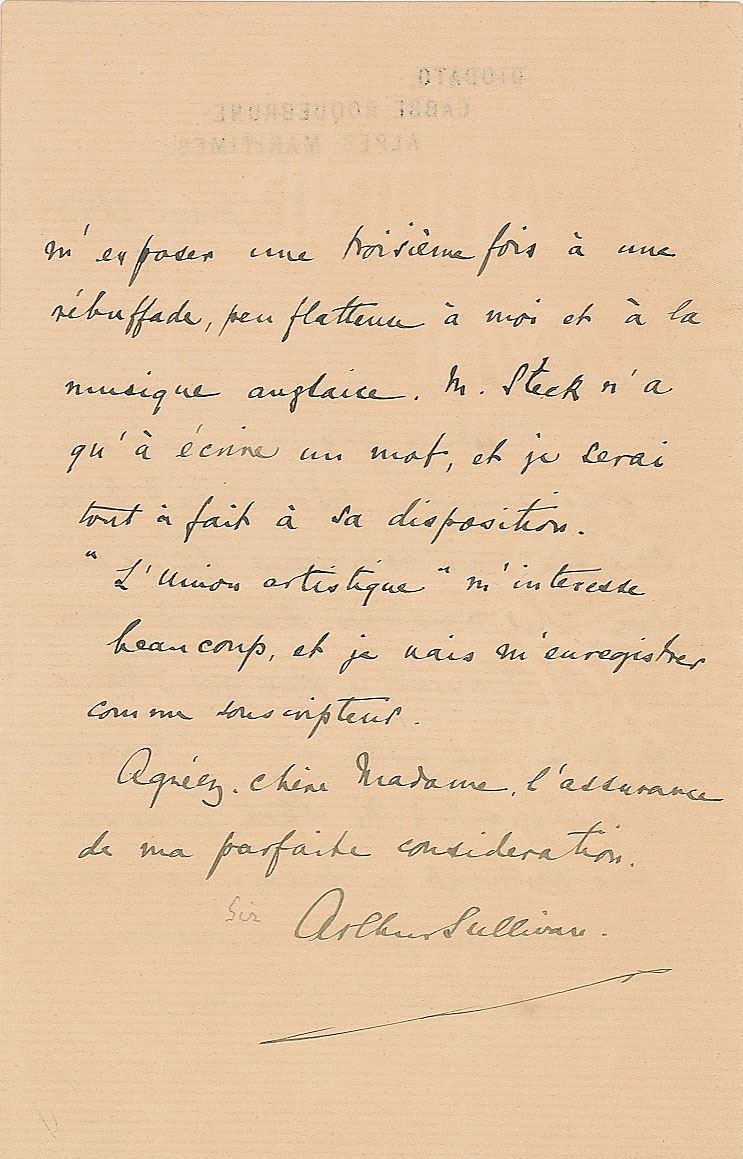 DIODATO,
CABBÉ ROQUEBRUNE
ALPES MARITIMES
m'exposer une troisième fois à une
rébuffade, peu flatteuse à moi et à la
musique anglaise. M. Steck n'a
qu'à écrire un mot, et je serai
tout à fait à sa disposition.
"L'Union artistique" m'interesse
beaucoup, et je vais m'enregistrer
comme souscripteur.
Agréez, chère Madame, l'assurance
de ma parfaite consideration.
Sir Arthur Sullivan.